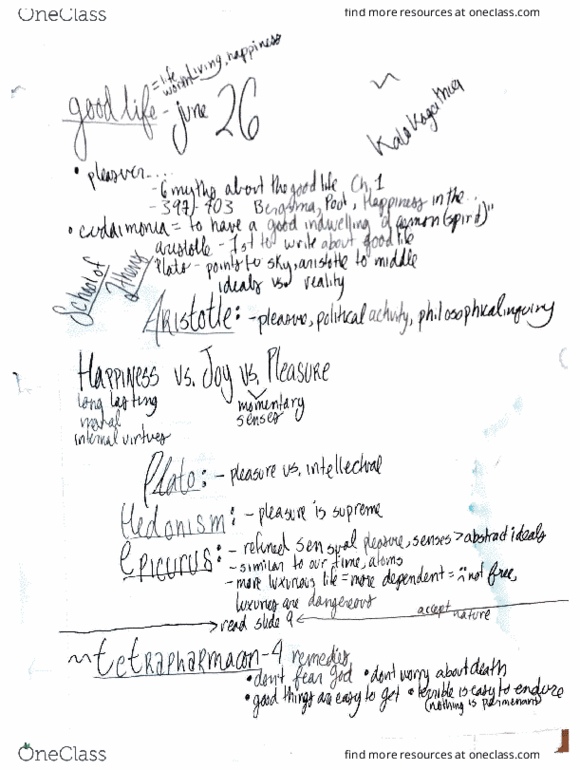 OneClass
find more resources at oneclass.com
= life worth living, happiness
good life - june 26
Kalokagathia
• pleasure.....
- 6 myths about the good life Ch. 1
- 397-403 Bergsma, Poot, Happiness in the...
• eudaimonia = to have a good indwelling daemon (spirit)"
aristotle - 1st to write about good life
School of Athens
Plato - points to sky, aristotle to middle
ideals vs. reality
ARISTOTLE: - pleasure, political activity, philosophical inquiry
HAPPINESS vs. JOY vs. PLEASURE
long lasting
moral
internal virtues
momentary
senses
Plato: - pleasure vs. intellectual
HEDONISM: - pleasure is supreme
EPICURUS: - refined sensual pleasure, senses > abstract ideals
- similar to our time, atoms
- more luxurious life = more dependent = ∴ not free,
luxuries are dangerous
accept nature
read slide 9
~tetrapharmacon - 4 remedies
• don't fear god • don't worry about death
• good things are easy to get • terrible is easy to endure
(nothing is permenant)
OneClass
find more resources at oneclass.com